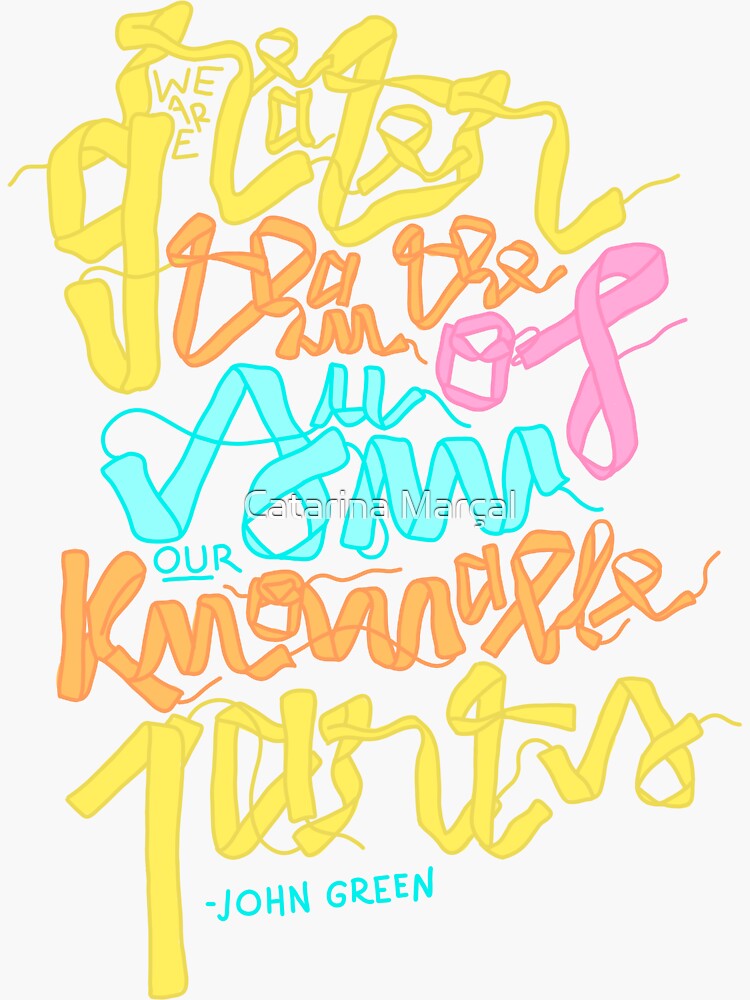 WE
ARE
greater
than the
of
OUR
Knowable
parts
-JOHN GREEN
Catarina Marçal